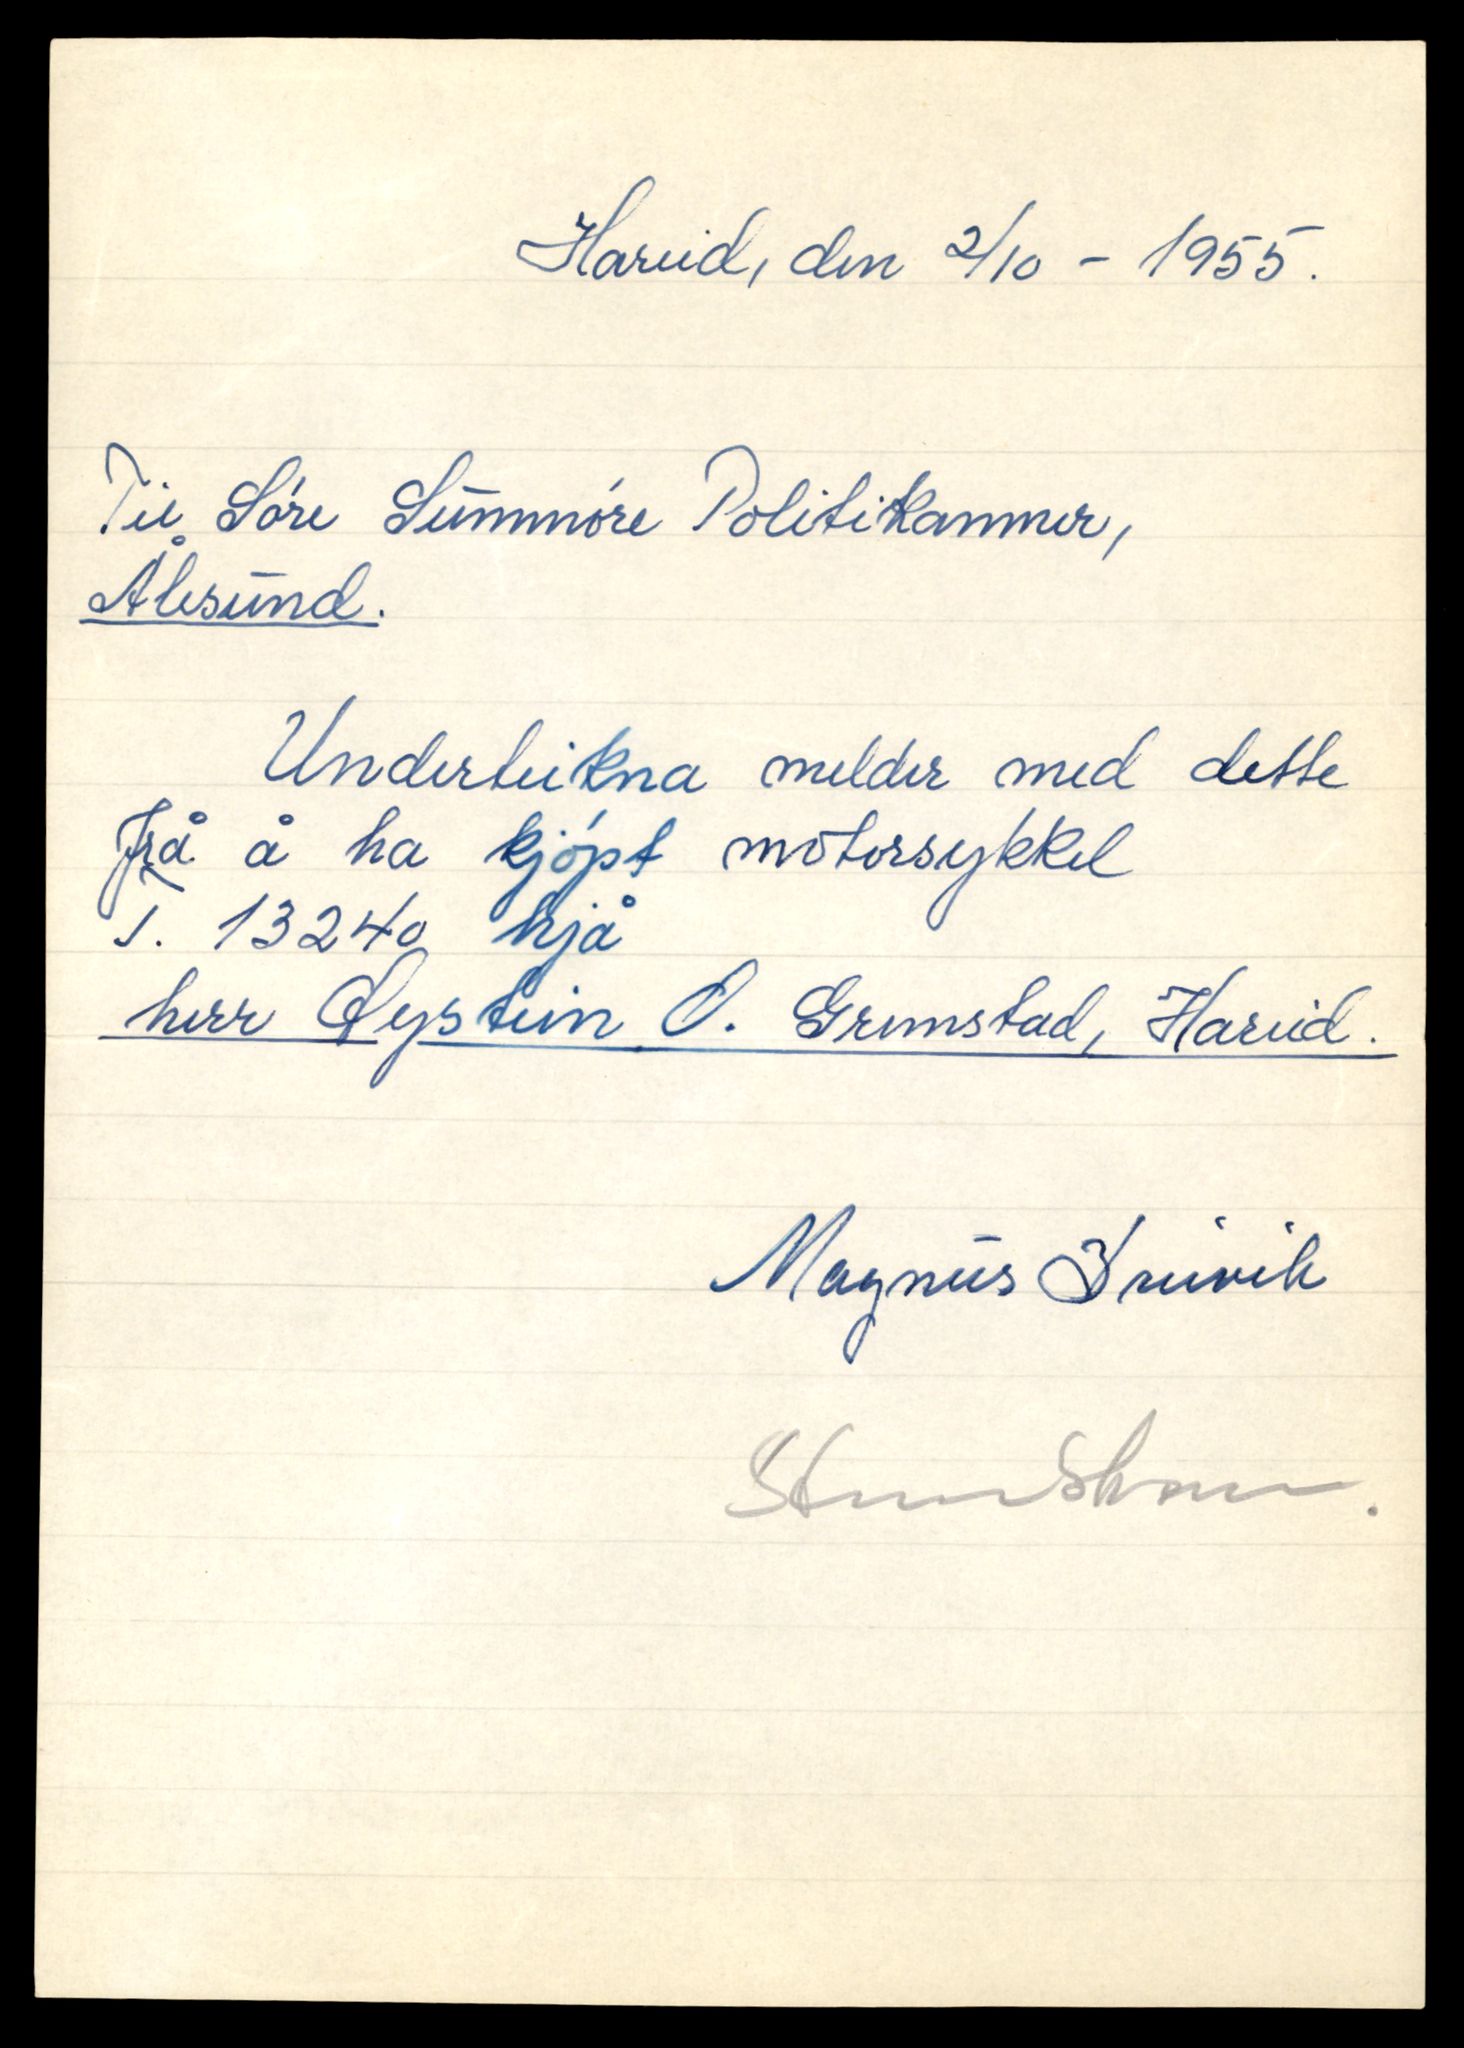 Hareid, den 2/10 - 1955.
Til Söre Sunnmöre Politikammer,
Ålesund.
Underteikna melder med dette
frå å ha kjöpt motorsykkel
T. 13240 hjå
herr Øystein O. Grimstad, Hareid.
Magnus